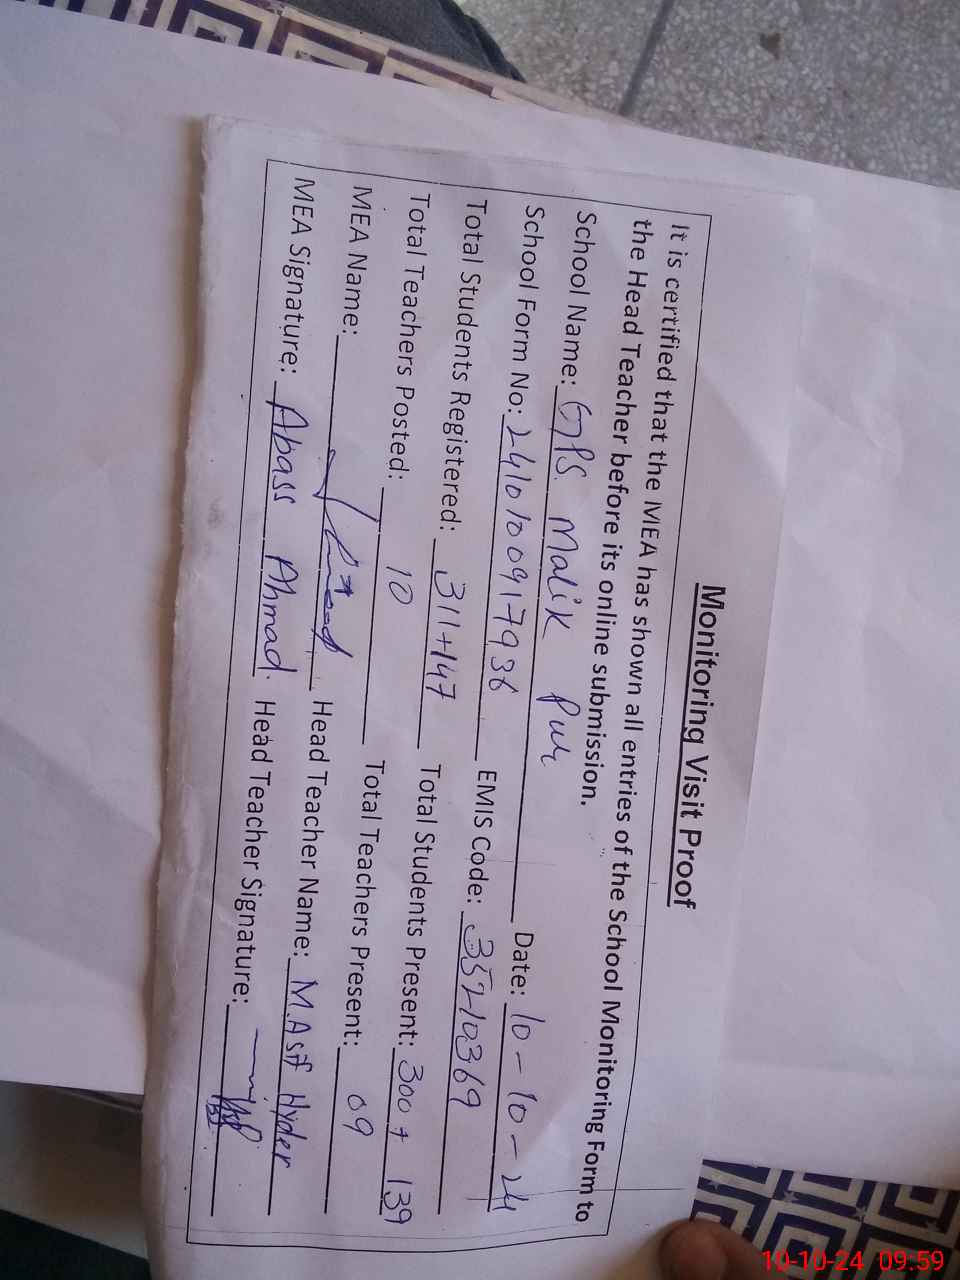 Monitoring Visit Proof
It is certified that the MEA has shown all entries of the School Monitoring Form to
the Head Teacher before its online submission.
School Name: GPS. Malik Pur Date: 10-10-24
School Form No: 2410100917936 EMIS Code: 35210369
Total Students Registered: 311+147 Total Students Present: 300+ 139
Total Teachers Posted: 10 Total Teachers Present: 09
MEA Name: Head Teacher Name: M.Asif Hyder
MEA Signature: Abass Ahmad. Head Teacher Signature:
10-10-24 09:59